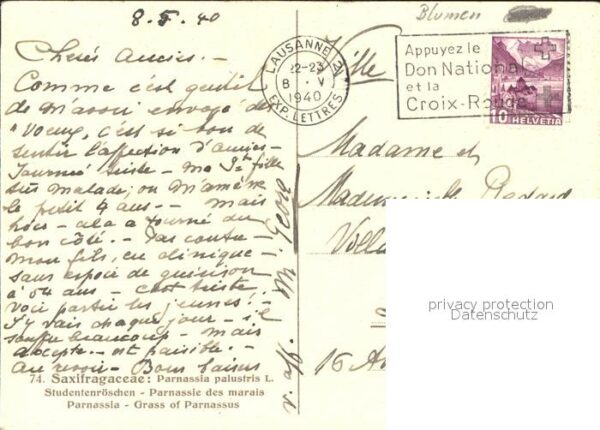 8.5.40
Blumen
Chers Amies. —
Comme c'est gentil
de m'avoir envoyé des
"Voeux, c'est si bon de
sentir l'affection d'amies.
Journée triste — Ma fille
très malade, on m'amène
le petit 4 ans — Mais
hier — cela a tourné du
bon côté. — Par contre —
mon fils, en clinique —
sans espoir de guérison
à 54 ans — c'est triste,
voir partir les jeunes! —
J'y vais chaque jour — il
souffre beaucoup — mais
accepte. — est paisible. —
Au revoir — Bons baisers
74. Saxifragaceae: Parnassia palustris L.
Studentenröschen - Parnassie des marais
Parnassia - Grass of Parnassus
LAUSANNE
22-23
8 V
1940
EXP. LETTRES
Ville
Appuyez le
Don National
et la
Croix-Rouge
10 HELVETIA
Madame et
Mademoiselle
Villa
16 Av
privacy protection
Datenschutz